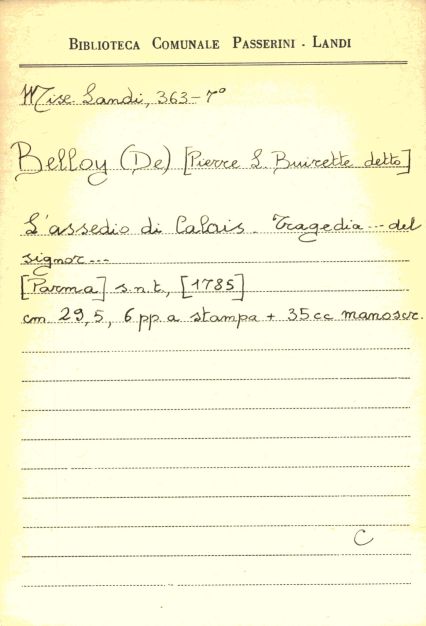 BIBLIOTECA COMUNALE PASSERINI - LANDI
Misc. Landi, 363-7°
Belloy (De) [Pierre L. Buirette detto]
L'assedio di Calais. Tragedia... del
signor...
[Parma] s.n.t., [1785]
cm 29,5, 6 pp. a stampa + 35 cc manoscr.
C